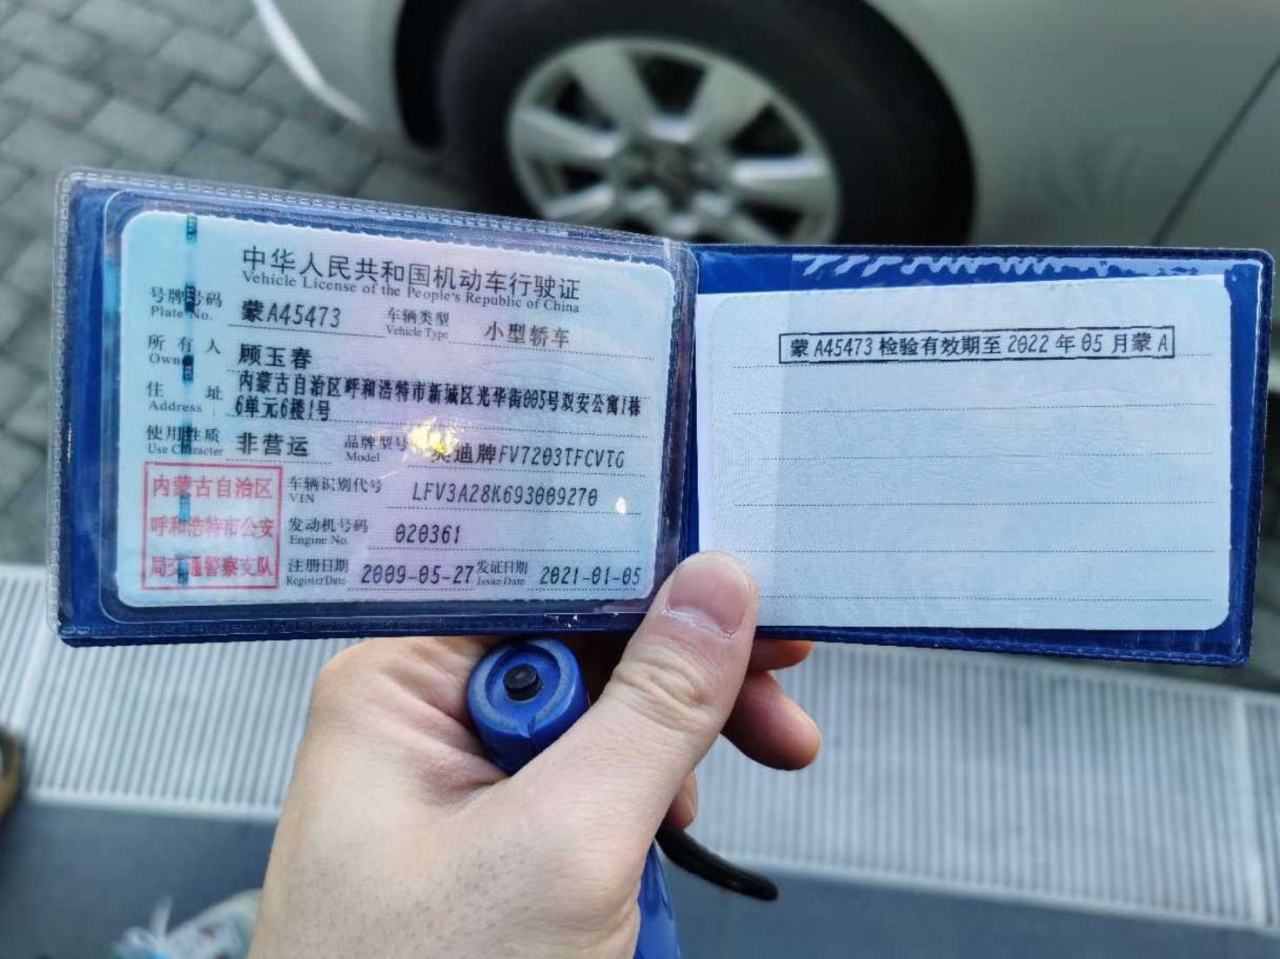 中华人民共和国机动车行驶证
Vehicle License of the People's Republic of China
号牌号码 蒙A45473 车辆类型 小型轿车
Plate No. Vehicle Type
所有人 顾玉春
Owner
住址 内蒙古自治区呼和浩特市新城区光华街005号双安公寓1栋
Address 6单元6楼1号
使用性质 非营运 品牌型号 奥迪牌FV7203TFCVTG
Use Character Model
内蒙古自治区
呼和浩特市公安
局交通警察支队
车辆识别代号 LFV3A28K693009270
VIN
发动机号码 020361
Engine No.
注册日期 2009-05-27 发证日期 2021-01-05
Register Date Issue Date
蒙A45473检验有效期至2022年05月蒙A